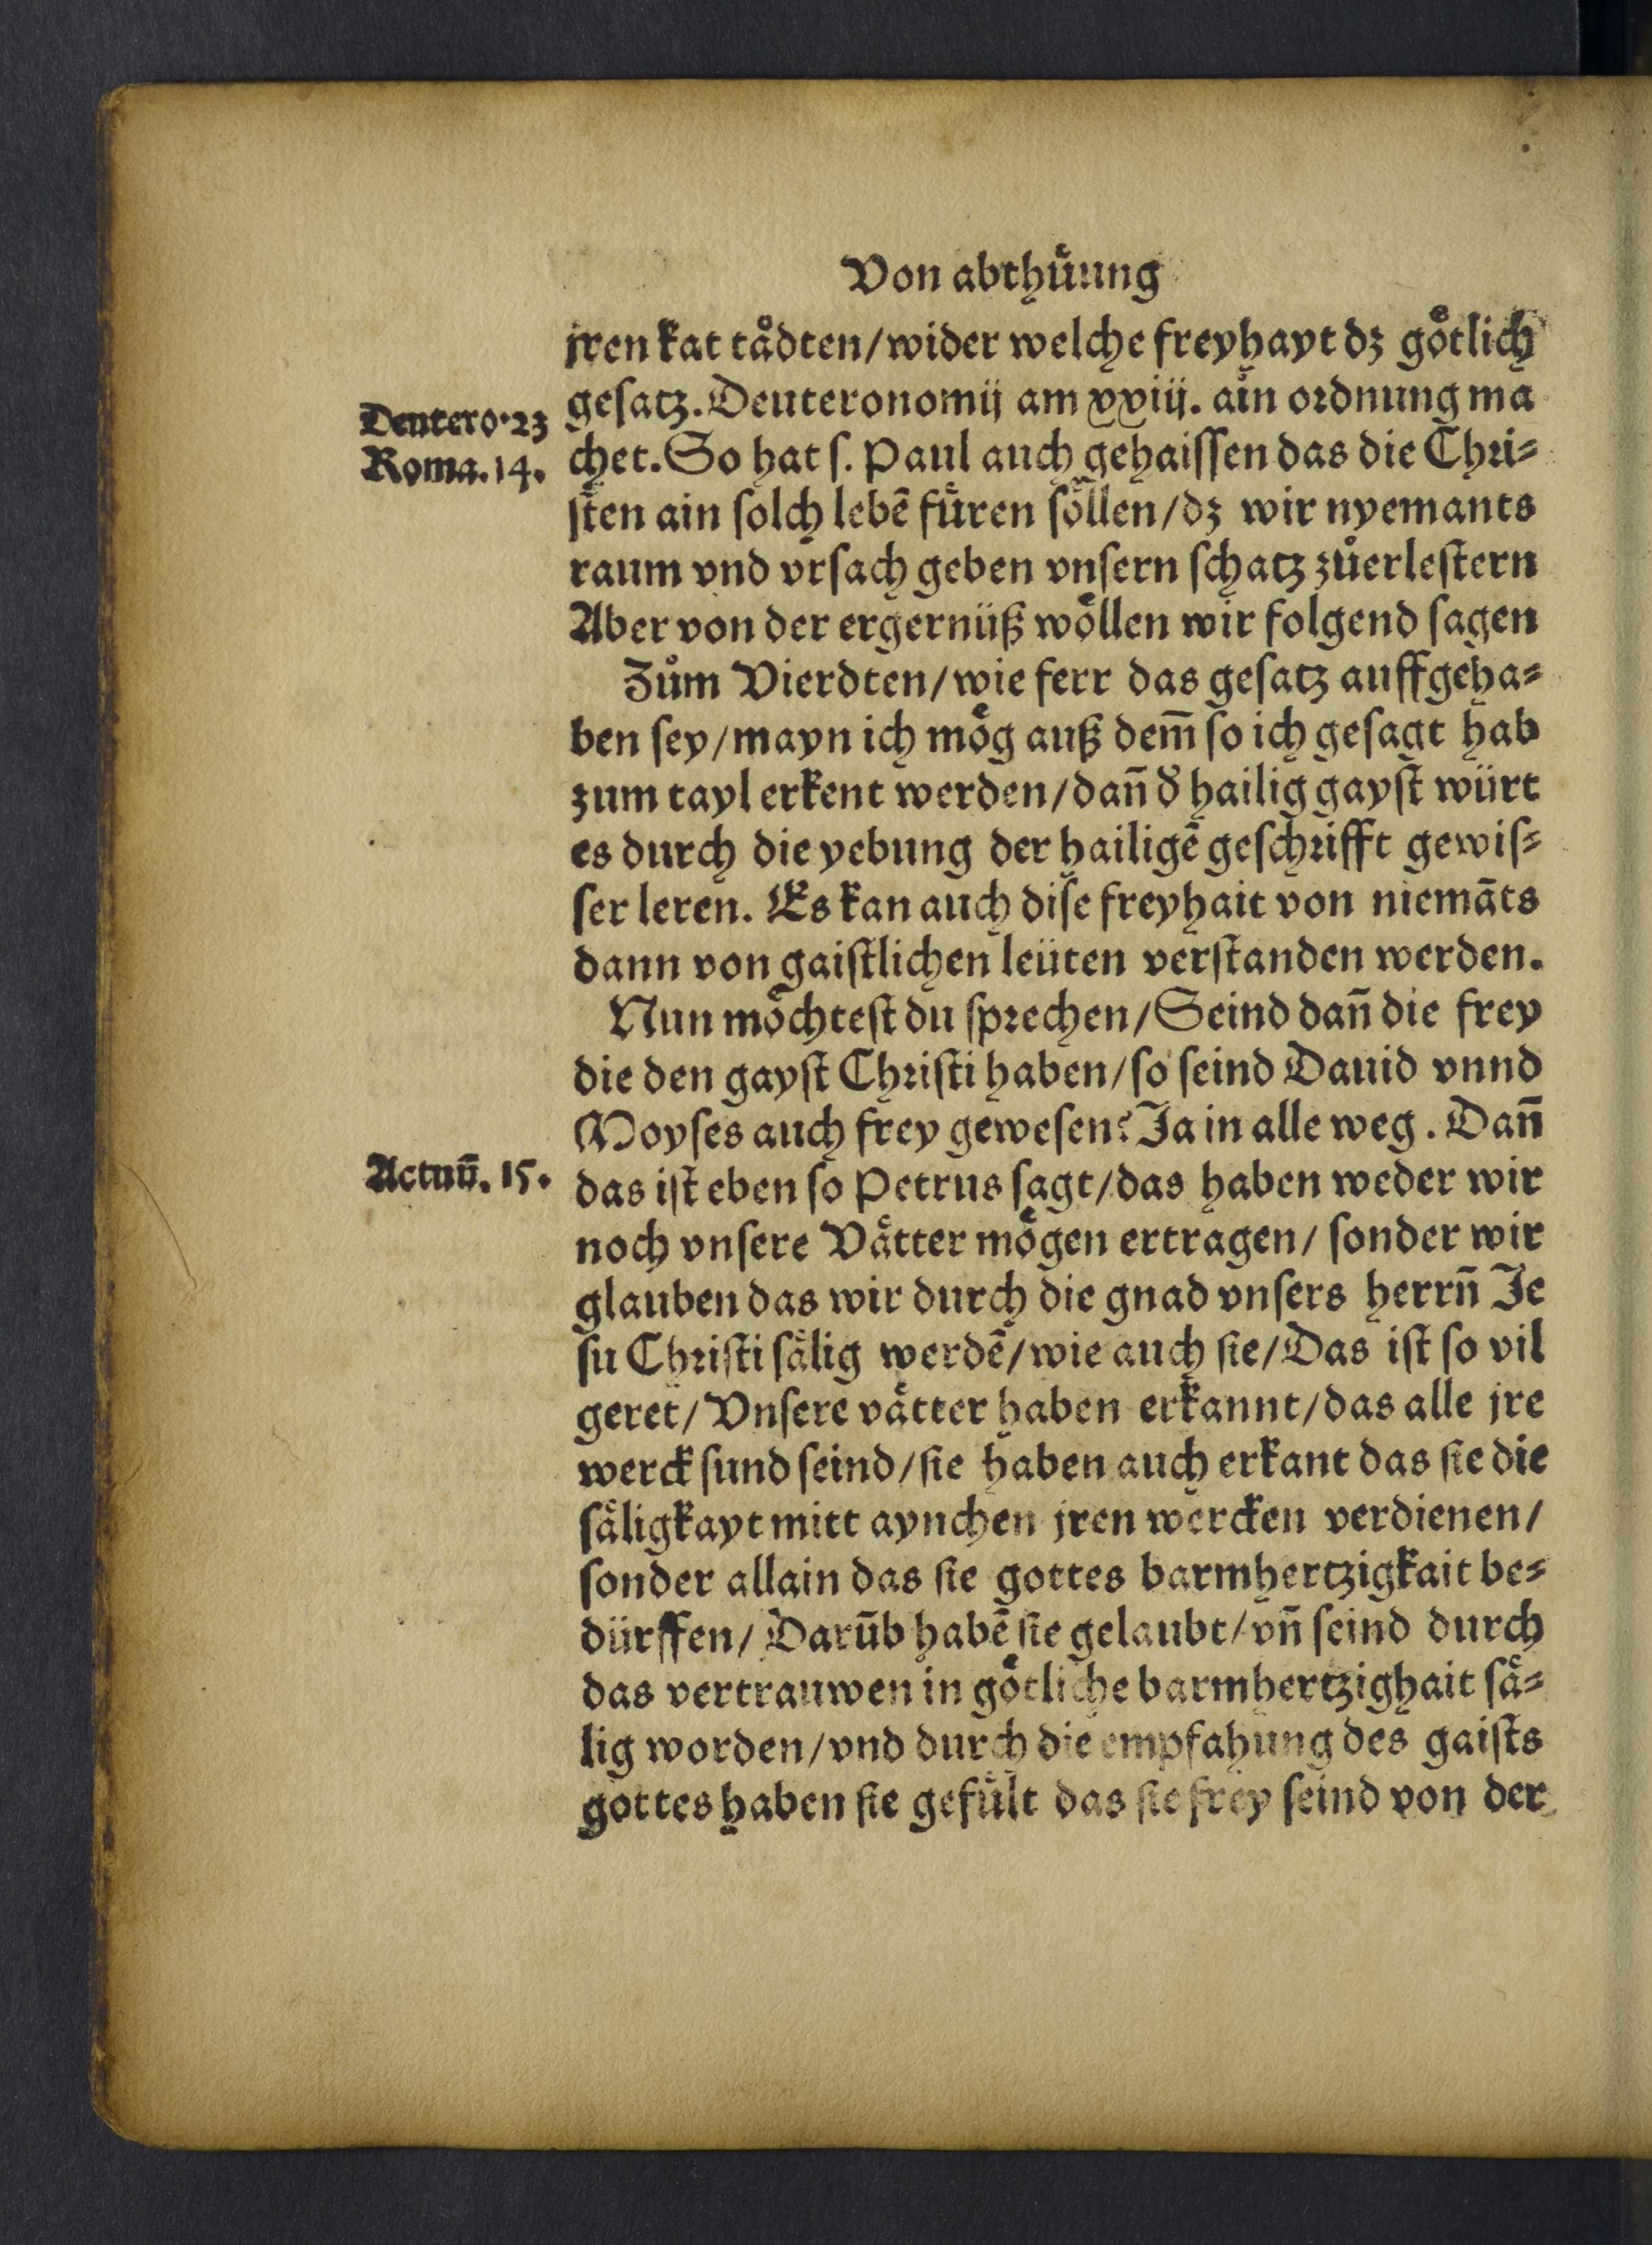 Von abthuͤung
jren kat taͤdten/wider welche freyhayt dz goͤtlich
gesatz.Deuteronomij am xxiij. ain ordnung ma
Deutero.23
chet.So hat s. Paul auch gehaissen das die Chri⸗
Roma.14.
sten ain solch lebē fuͤren soͤllen/dz wir nyemants
raum vnd vrsach geben vnsern schatz zuͦerlestern
Aber von der ergernüß woͤllen wir folgend sagen
Zuͦm Vierdten/wie ferr das gesatz auffgeha⸗
ben sey/mayn ich moͤg auß dem̄ so ich gesagt hab
zum tayl erkent werden/dan̄ d̕ hailig gayst würt
es durch die yebung der hailigē geschrifft gewis⸗
ser leren. Es kan auch dise freyhait von niemāts
dann von gaistlichen leüten verstanden werden.
Nun moͤchtest du sprechen/Seind dan̄ die frey
die den gayst Christi haben/so seind Dauid vnnd
Moyses auch frey gewesen? Ja in alle weg. Dan̄
das ist eben so Petrus sagt/das haben weder wir
Actuū. 15.
noch vnsere Vaͤtter moͤgen ertragen/ sonder wir
glauben das wir durch die gnad vnsers herrn̄ Je
su Christi saͤlig werdē/wie auch sie/Das ist so vil
geret/Vnsere vaͤtter haben erkannt/das alle jre
werck sund seind/sie haben auch erkant das sie die
saͤligkayt mitt aynchen jren wercken verdienen/
sonder allain das sie gottes barmhertzigkait be⸗
dürffen/ Darūb habē sie gelaubt/vn̄ seind durch
das vertrauwen in goͤtliche barmhertzighait saͤ⸗
lig worden/vnd durch die empfahung des gaists
gottes haben sie gefuͤlt das sie frey seind von der